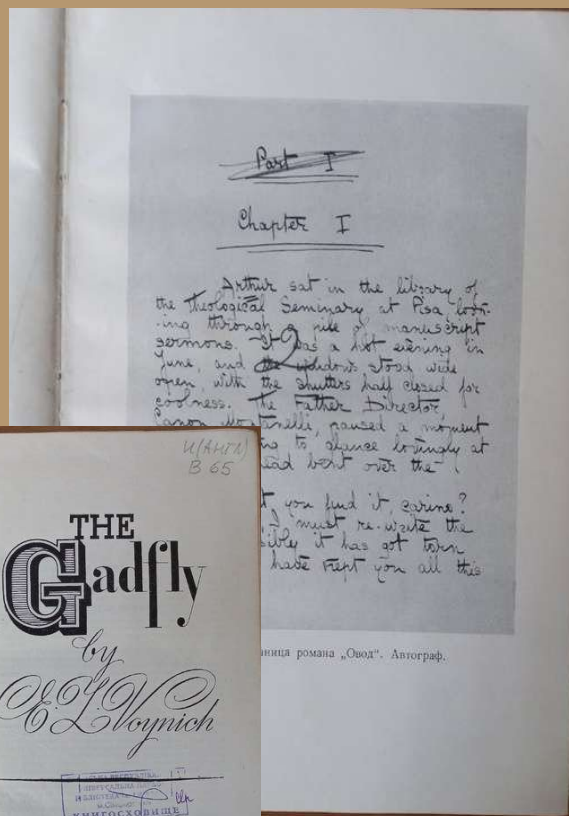 Part I
Chapter I
Arthur sat in the library of
the Theological Seminary at Pisa, look-
-ing through a pile of manuscript
sermons. It was a hot evening in
June, and the windows stood wide
open, with the shutters half closed for
coolness. The Father Director,
Canon Montanelli, paused a moment
to glance lovingly at
head bent over the
you find it, carino?
must re-write the
it has got torn
have kept you all this
2
романа „Овод“. Автограф.
И(АНГЛ)
В 65
THE
Gadfly
by
E. L. Voynich
КНИГОСХОВИЩЕ